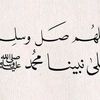 لهم صل وسل
لى نبينا محمد ﷺ